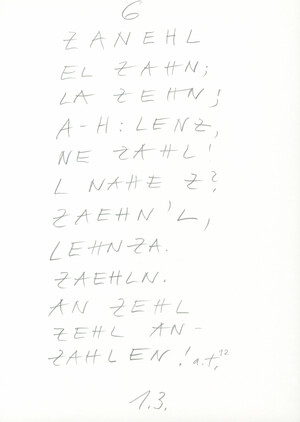 6
ZANEHL
EL ZAHN;
LA ZEHN;
A-H: LENZ,
NE ZAHL!
L NAHE Z?
ZAEHN'L,
LEHNZA.
ZAEHLN.
AN ZEHL
ZEHL AN-
ZAHLEN! a.t,12
1.3.